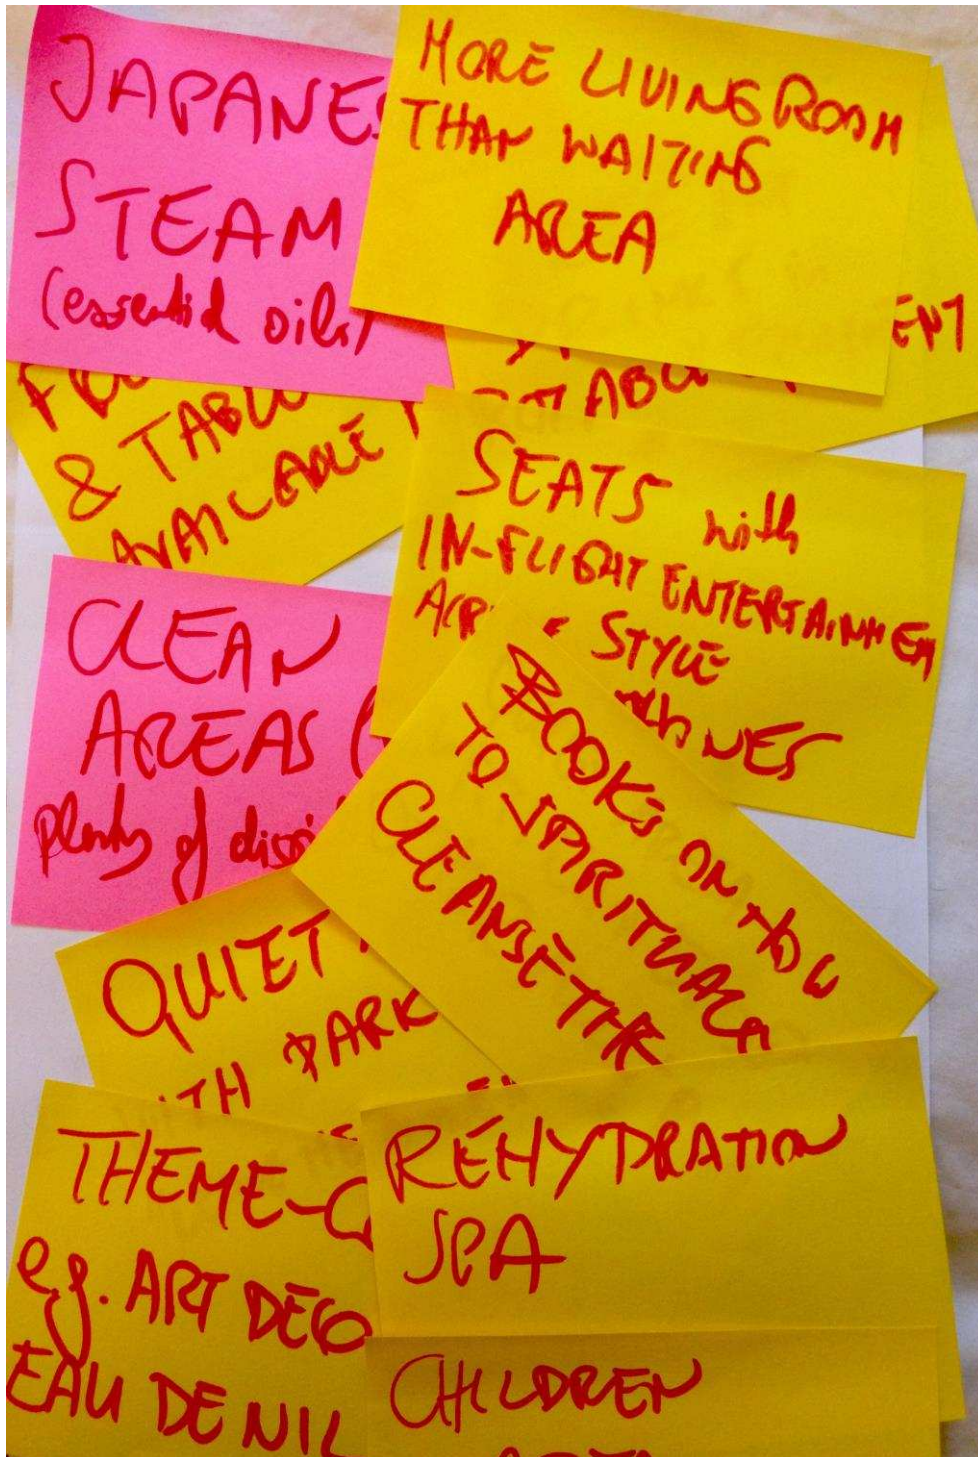 JAPANES
STEAM
(essential oils)
MORE LIVING ROOM
THAN WAITING
AREA
& TABL
AVAILABLE
SEATS with
IN-FLIGHT ENTERTAINMEN
STYLE
CLEAN
AREAS (
plenty of
BOOKS ON HOW
TO SPIRITUALL
CLEANSE THE
QUIET
WITH PARK
THEME-
e.g. ART DECO
EAU DE NIL
REHYDRATION
SPA
CHILDREN